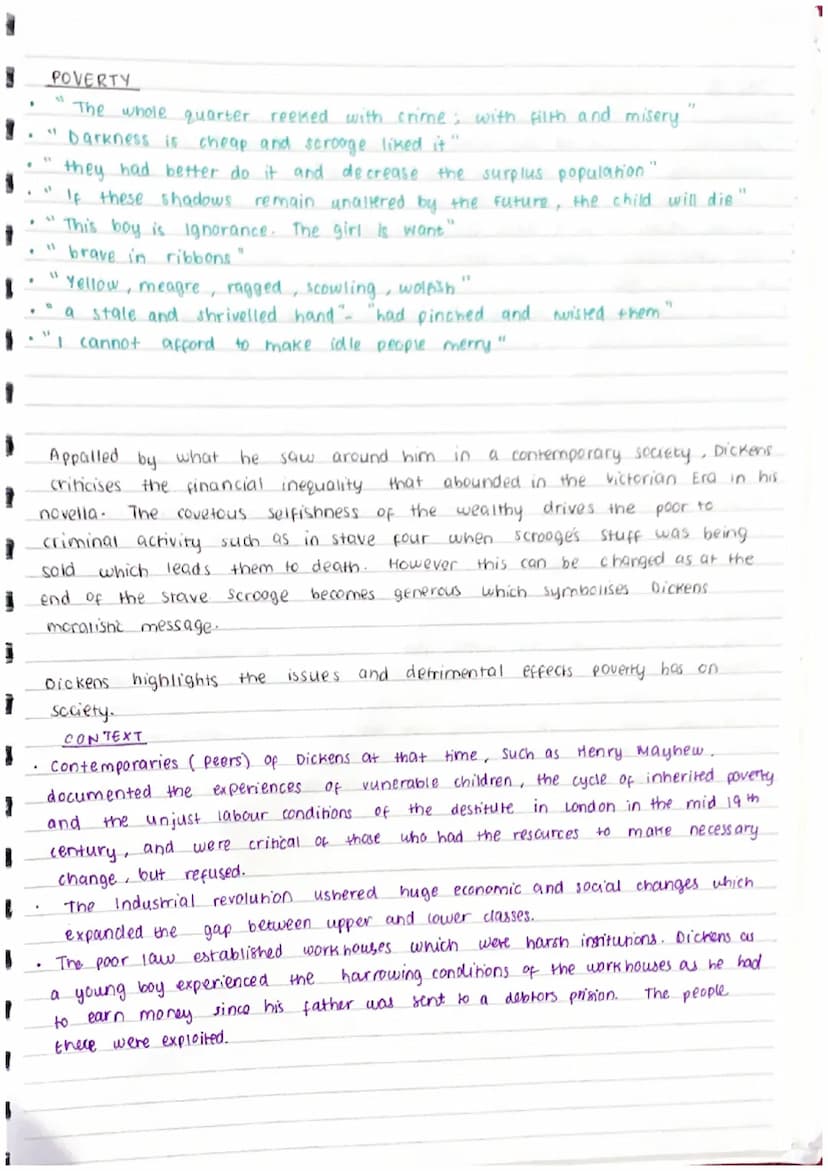 POVERTY
• "The whole quarter reeked with crime; with filth and misery"
• "Darkness is cheap and scrooge liked it"
• "they had better do it and decrease the surplus population"
• "If these shadows remain unaltered by the future, the child will die"
• "This boy is Ignorance. The girl is want"
• "brave in ribbons"
• "Yellow, meagre, ragged, scowling, wolfish"
• "a stale and shrivelled hand"- "had pinched and twisted them"
• "I cannot afford to make idle people merry"
Appalled by what he saw around him in a contemporary society, Dickens
criticises the financial inequality that abounded in the Victorian Era in his
novella. The covetous selfishness of the wealthy drives the poor to
criminal activity such as in stave four when scrooge's stuff was being
sold which leads them to death. However this can be changed as at the
end of the stave scrooge becomes generous which symbolises Dickens
moralisht message.
Dickens highlights the issues and detrimental effects poverty has on
society.
CONTEXT
• Contemporaries (peers) of Dickens at that time, such as Henry Mayhew.
documented the experiences of vunerable children, the cycle of inherited poverty
and the unjust labour conditions of the destitute in London in the mid 19th
century, and were critical of those who had the resources to make necessary
change, but refused.
• The Industrial revolution ushered huge economic and social changes which
expanded the gap between upper and lower classes.
• The poor law established workhouses which were harsh institutions. Dickens as
a young boy experienced the harrowing conditions of the workhouses as he had
to earn money since his father was sent to a debtors prision. The people
there were exploited.